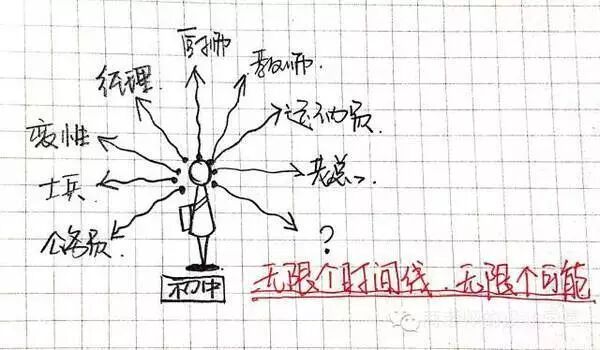 厨师
经理
教师
变性
运动员
士兵
老总
公务员
?
初中
无限个时间线.无限个可能